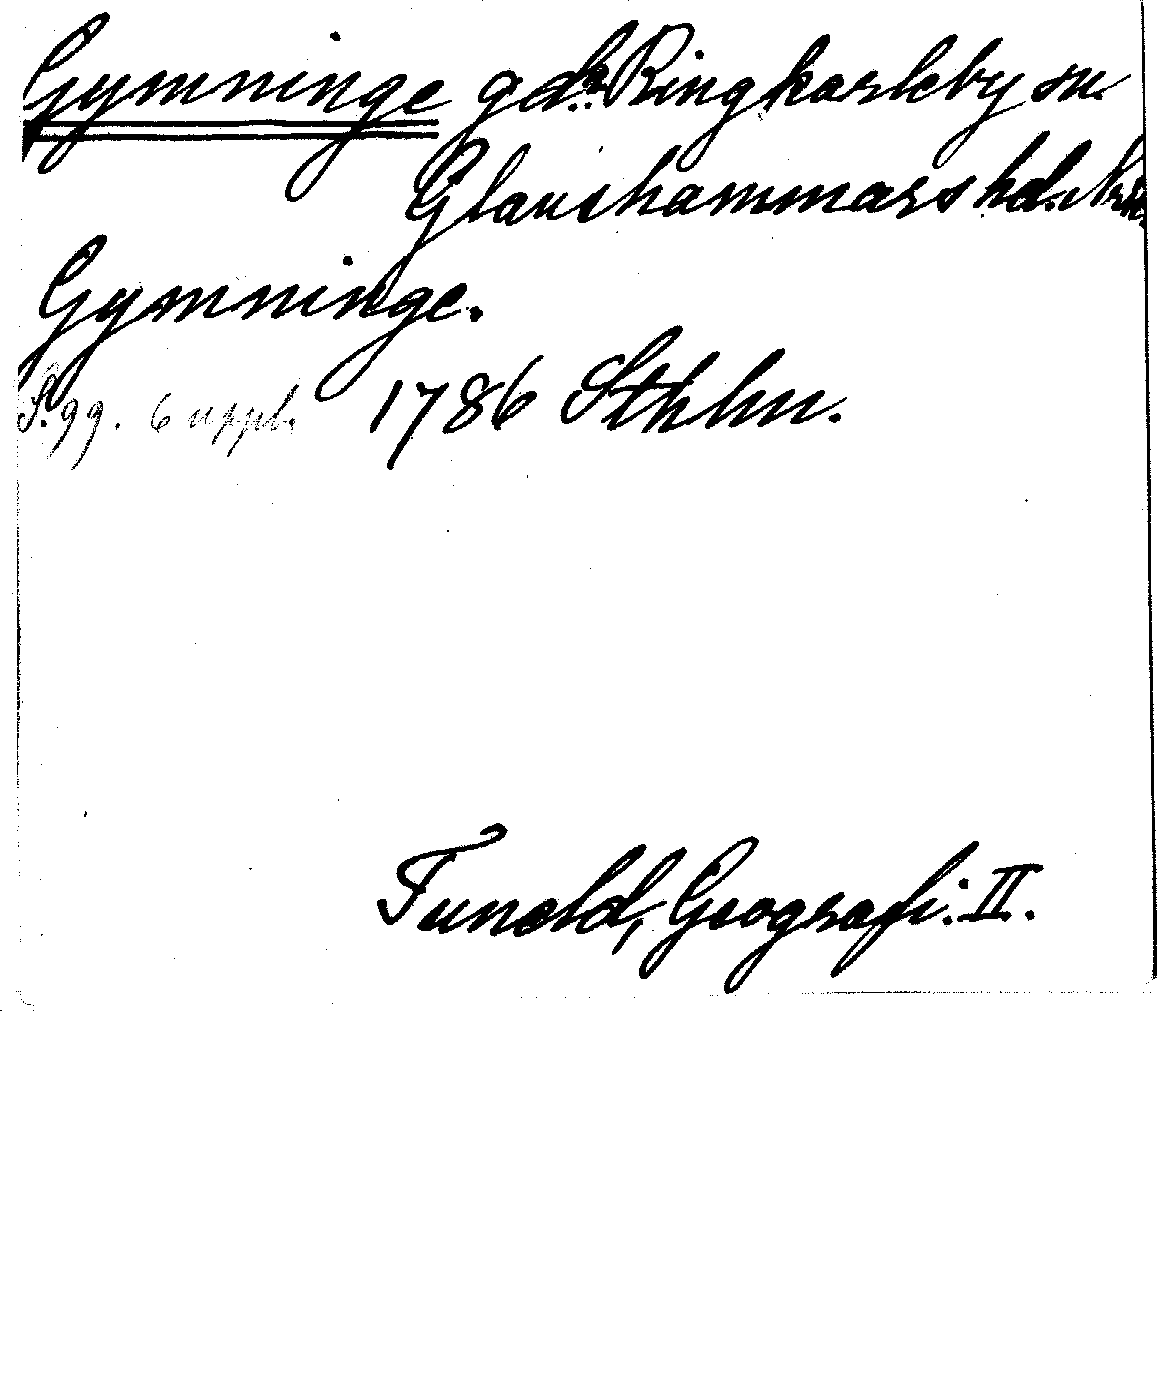 Gymninge gd. Ringkarleby sn.
Glanshammars hd. Nrk.
Gymninge.
S. 99. 6 uppl. 1786 Sthlm.
Tuneld, Geografi. II.